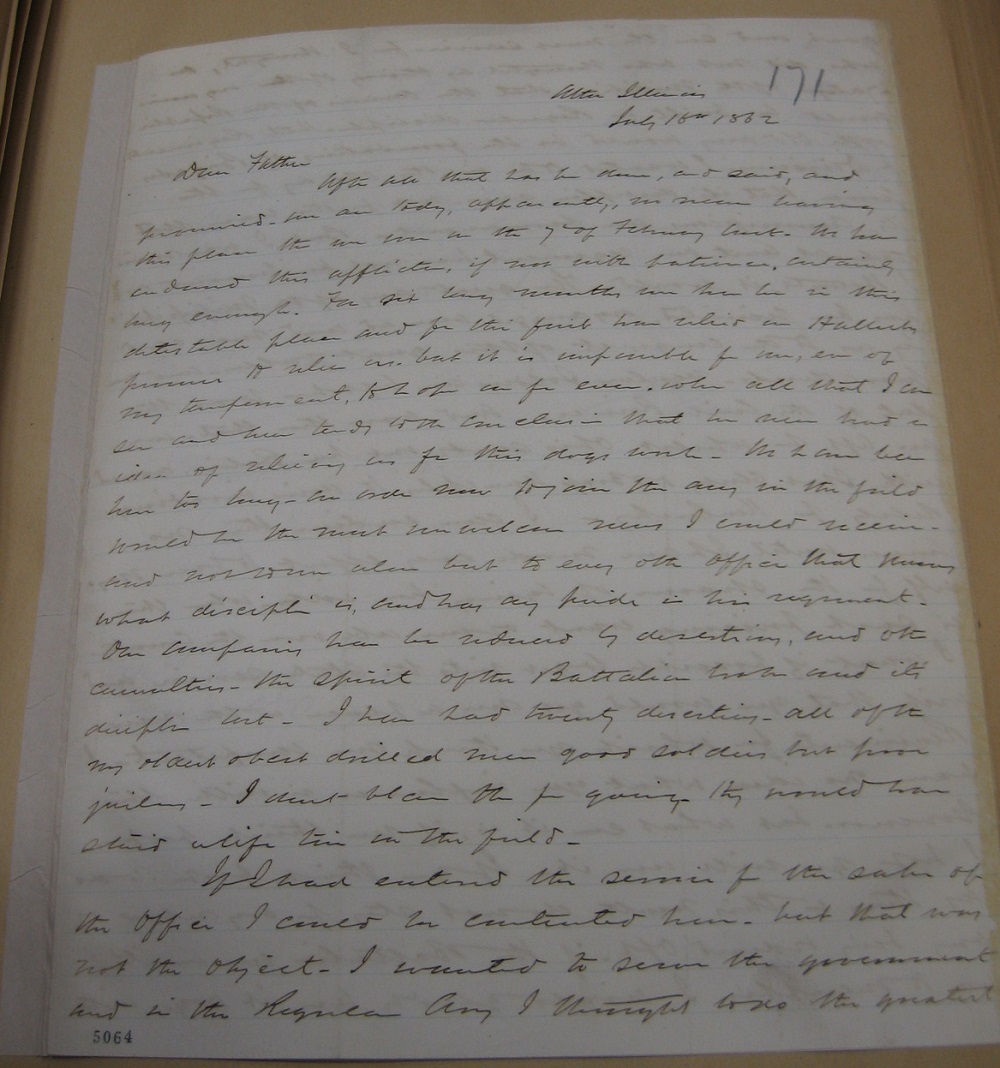 171
Alton Illinois
July 18th 1862
Dear Father
After all that has be done, and said, and
promised - we are today, apparently, no nearer leaving
this place than we were on the 7th of February last - We have
endured this affliction, if not with patience, certainly
long enough. For six long months we have be in this
detestable place and for this first have relied on Hallecks
promise to relieve us. but it is impossible for me, even of
my temperament, to hope on for ever. when all that I can
see and hear tends to the conclusion that he never had an
idea of relieving us for this dogs work - We have been
here too long - an order now to join the army in the field
would be the most unwelcome news I could receive -
and not to me alone but to every other officer that knows
what discipline is, and has any pride in his regiment -
Our companies have be reduced by desertions, and other
casualties - the spirit of the Battalion broke and its
discipline lost - I have had twenty desertions - all of the
my oldest best drilled men good soldiers but poor
jailors - I dont blame the for going - they would have
staid a life time in the field -
If I had entered the service for the sake of
the Office I could be contented here - but that was
not the object - I wanted to serve the government
and in the Regular Army I thought to do the greatest
5064